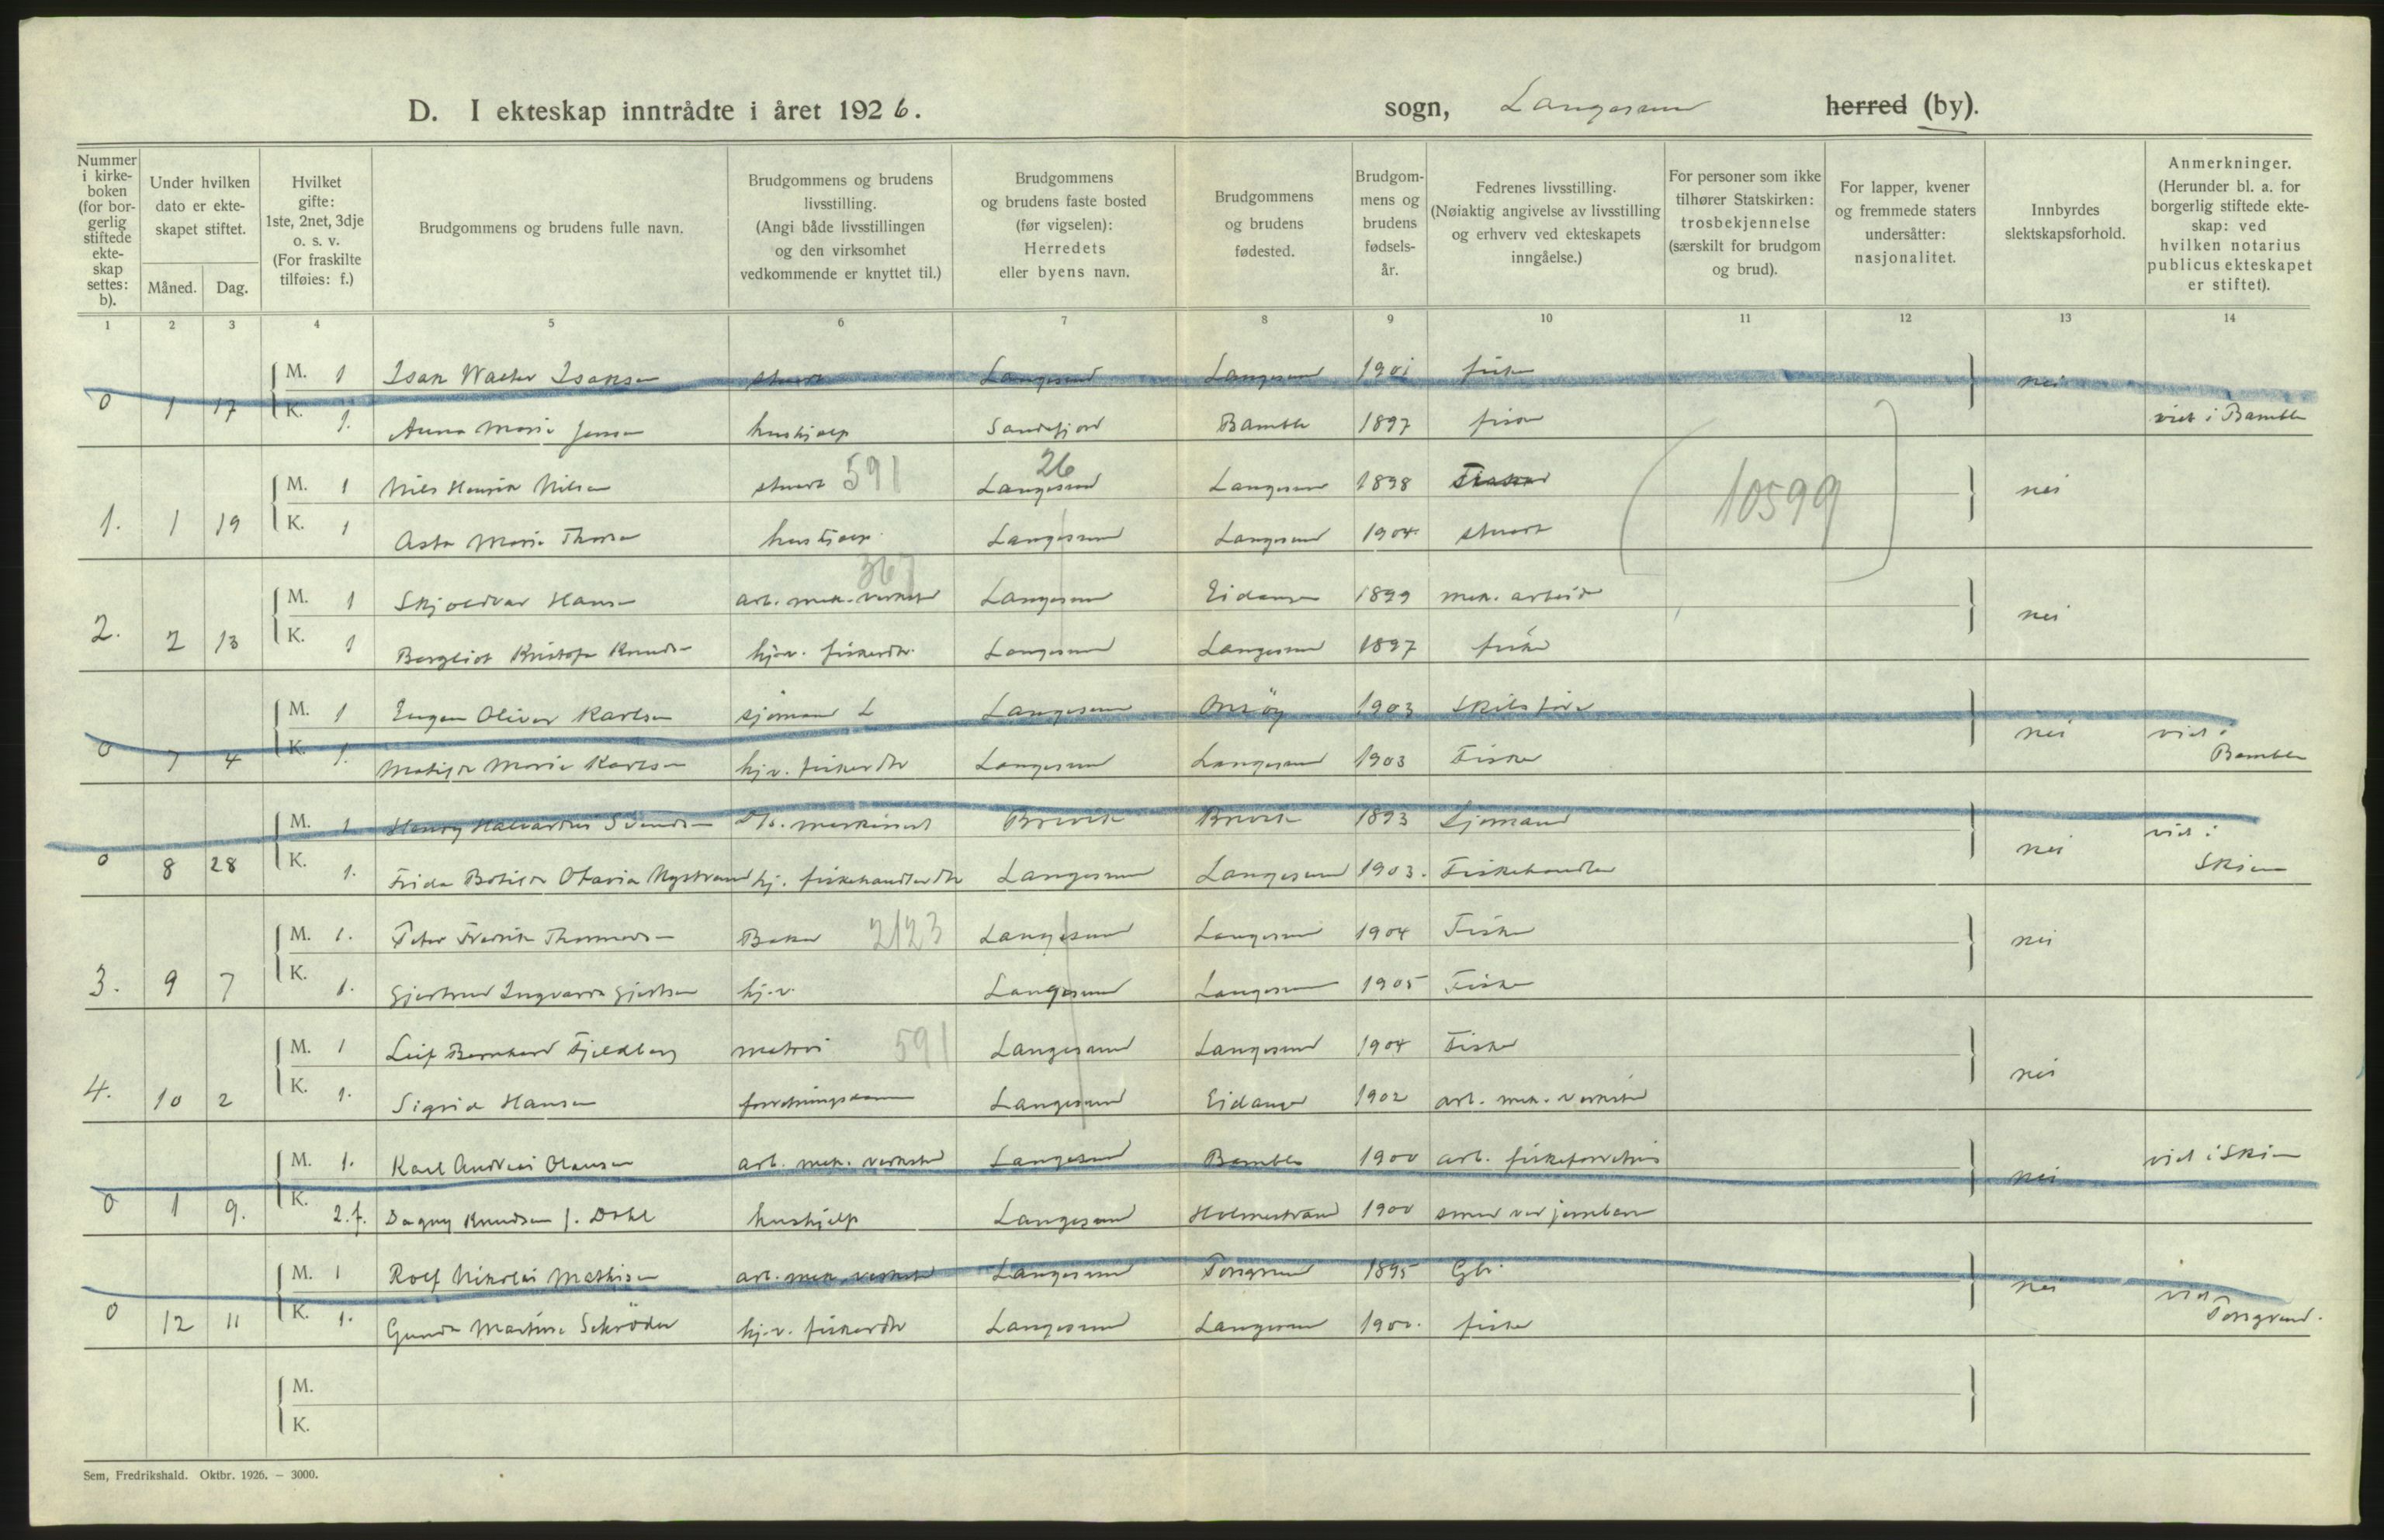 D. I ekteskap inntrådte i året 1926.
sogn, Langesund herred (by).
Nummer i kirke-boken (for bor-gerlig stiftede ekte-skap settes: b).
Under hvilken dato er ekte-skapet stiftet.
Måned. Dag.
Hvilket gifte: 1ste, 2net, 3dje o. s. v. (For fraskilte tilføies: f.)
Brudgommens og brudens fulle navn.
Brudgommens og brudens livsstilling. (Angi både livsstillingen og den virksomhet vedkommende er knyttet til.)
Brudgommens og brudens faste bosted (før vigselen): Herredets eller byens navn.
Brudgommens og brudens fødested.
Brudgom-mens og brudens fødsels-år.
Fedrenes livsstilling. (Nøiaktig angivelse av livsstilling og erhverv ved ekteskapets inngåelse.)
For personer som ikke tilhører Statskirken: trosbekjennelse (særskilt for brudgom og brud).
For lapper, kvener og fremmede staters undersåtter: nasjonalitet.
Innbyrdes slektskapsforhold.
Anmerkninger. (Herunder bl. a. for borgerlig stiftede ekte-skap: ved hvilken notarius publicus ekteskapet er stiftet).
1 2 3 4 5 6 7 8 9 10 11 12 13 14
M. 1 Isak Walter Isaksen stuert Langesund Langesund 1901 fisker nei
0 1 17 K. 1. Anna Marie Jensen hushjelp Sandefjord Bamble 1897 fisker viet i Bamble
M. 1 Nils Henrik Nilsen stuert 591 26 Langesund Langesund 1898 Fisker nei
1. 1 19 K. 1 Asta Marie Thorsen hushjelp Langesund Langesund 1904 stuert
(10599)
M. 1 Skjoldvar Hansen arb. mek. verksted 367 Langesund Eidanger 1899 mek. arbeider nei
2. 2 13 K. 1 Bergliot Kristofa Knudsen hj.v. fiskerdtr. Langesund Langesund 1897 fisker
M. 1 Eugen Oliver Karlsen sjømand L Langesund Onsøy 1903 nei viet i
0 7 4 K. 1. Matilda Marie Karlsen hj.v. fiskerdtr Langesund Langesund 1903 Fisker Bamble
M. 1 Henry Svendsen maskinist Brevik Brevik 1893 Sjømand nei viet i
0 8 28 K. 1. Frida Botilda Otavia Nystrand hj. fiskehandlerdtr Langesund Langesund 1903. Fiskehandler Skien
M. 1. Peter Fredrik Thommesen Baker 2123 Langesund Langesund 1904 Fisker nei
3. 9 7 K. 1. Gjertrud Ingvarda Gjertsen hj.v. Langesund Langesund 1905 Fisker
M. 1 Leif Bernhard Fjeldberg matros 591 Langesund Langesund 1904 Fisker nei
4. 10 2 K. 1. Sigrid Hansen forretningsdame Langesund Eidanger 1902 arb. mek. verksted
M. 1. Karl Andreas Olausen arb. mek. verksted Langesund Bamble 1900 arb. fiskeforretning nei viet i Skien
0 1 9. K. 2.f. Dagny Knudsen f. Dahl hushjelp Langesund Holmestrand 1900 smed ved jernbanen
M. 1 Rolf Nikolai Mathisen arb. mek. verksted Langesund Porsgrund 1895 Gbr. nei viet
0 12 11 K. 1. Gunda Martine Schrøder hj.v. fiskerdtr Langesund Langesund 1900. fisker Porsgrund.
M.
K.
Sem, Fredrikshald. Oktbr. 1926. – 3000.